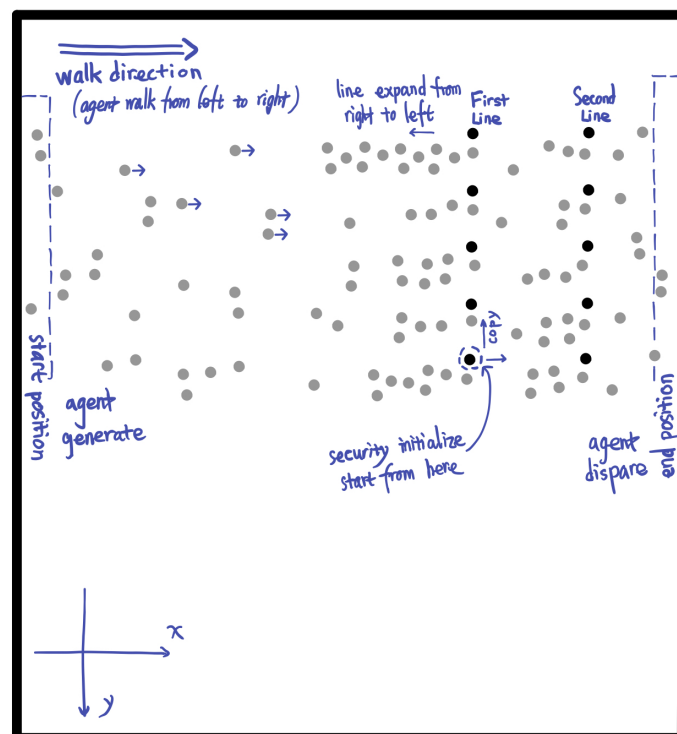 walk direction
(agent walk from left to right)
line expand from
right to left
First
Line
Second
Line
start position
agent
generate
copy
security initialize
start from here
agent
dispare
end position
x
y